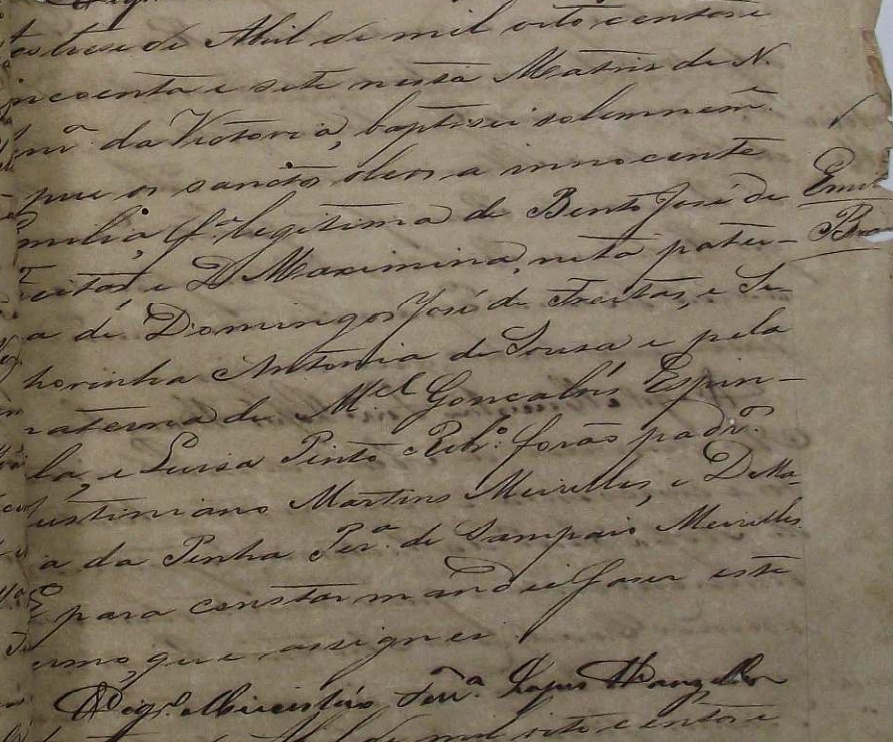 tres de Abril de mil oito centos e
incoenta e sete nesta Matris de N.
da Victoria, baptisei solemnem.e
pus os sanctos oleos a innocente
milia, f.a legitima de Bento José de
eitas, e D. Maximina, neta pater-
a de Domingos José de Freitas, e Se-
horinha Antonia de Sousa e pela
aterna de M.el Gonçalvis Espin-
la, e Luisa Pinto Rib.o forão padr.os
ustiniano Martins Meirelles, e D. Ma-
a da Penha Per.a de Sampaio Meirelles
para constar mandei faser este
rmo, que assignei.
Vigr.o Ferr.a Lopes
de mil oito centos e
Emi
Br